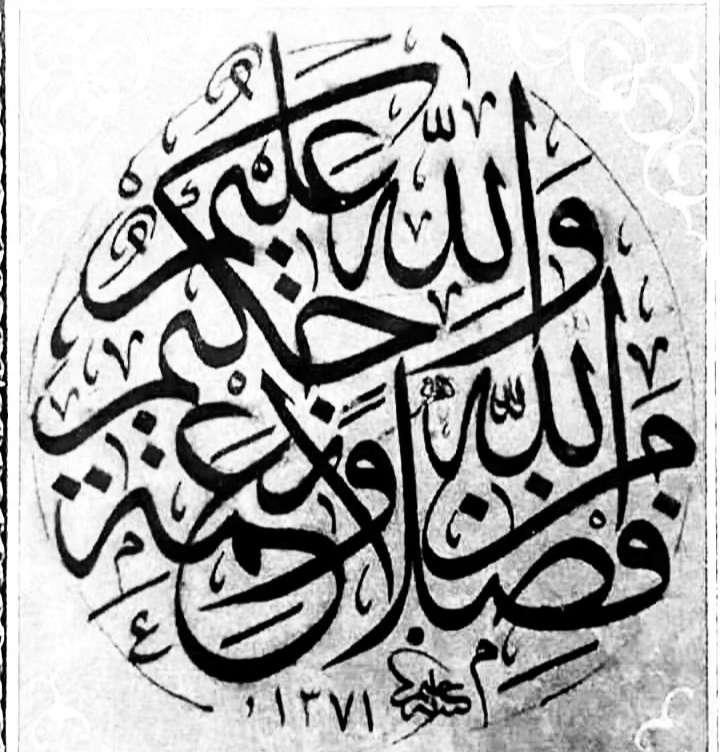 فَضْلًا مِنَ اللّٰهِ وَنِعْمَةً
وَاللّٰهُ عَلِيمٌ حَكِيمٌ
١٣٧١